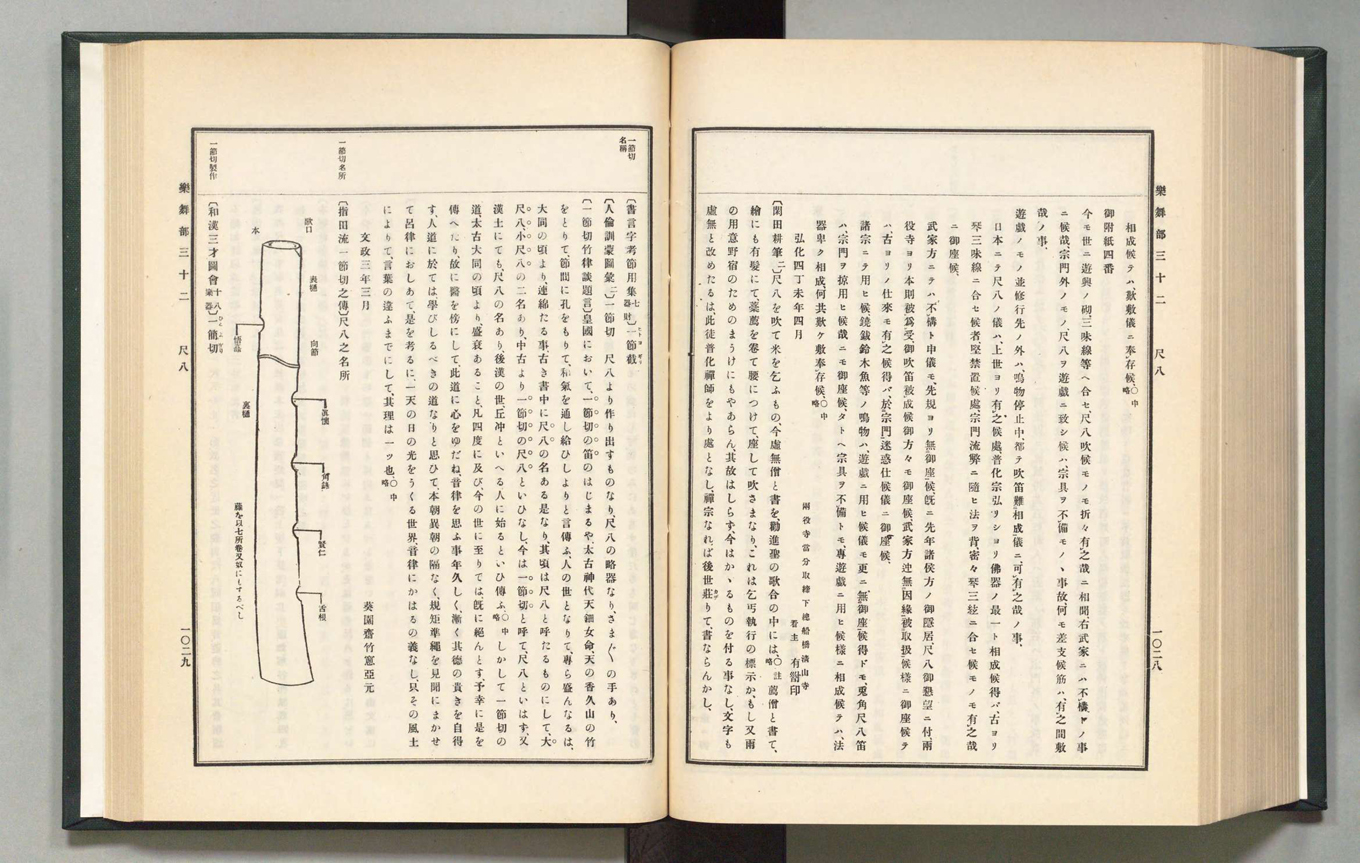 樂舞部三十二 尺八 一〇二八
相成候テハ、歎敷儀ニ奉存候、〇中略
御附紙四番
今モ世ニ遊興ノ砌、三味線等ヘ合セ尺八吹候モノモ折々有之哉ニ相聞、右武家ニハ不構トノ事
ニ候哉、宗門外ノモノ、尺八ヲ遊戲ニ致シ候ハ、宗具ヲ不備モノヽ事故、何モ差支候筋ハ、有之間敷
哉ノ事、
遊戲ノモノ並修行先ノ外ハ、鳴物停止中都テ吹笛難相成儀ニ可有之哉ノ事、
日本ニテ尺八ノ儀ハ、上世ヨリ有之候處、普化宗弘リシヨリ佛器ノ最一ト相成候得バ、古ヨリ
琴三味線ニ合セ候者堅禁置候處、宗門流弊ニ隨ヒ法ヲ背、密々琴三絃ニ合セ候モノモ有之哉
ニ御座候、
武家方ニテハ不構ト申儀モ、先規ヨリ無御座候、既ニ先年諸侯方ノ御隱居、尺八御懇望ニ付、兩
役寺ヨリ本則被爲受御吹笛被成候御方々モ御座候、武家方迚無因緣被取扱候樣ニ御座候テ
ハ、古ヨリノ仕來モ有之候得バ、於宗門迷惑仕候儀ニ御座候、
諸宗ニテ用ヒ候鐃鈸鈴木魚等ノ鳴物ハ、遊戲ニ用ヒ候儀モ更ニ無御座候得ドモ、兎角尺八笛
ハ、宗門ヲ掠用ヒ候哉ニモ御座候、タトヘ宗具ヲ不備トモ、專遊戲ニ用ヒ候樣ニ相成候テハ、法
器卑ク相成、何共歎ケ敷奉存候、〇中略
弘化四丁未年四月
兩役寺當分取締下總船橋淸山寺
看主 有 印
〔閑田耕筆二〕尺八を吹て米を乞ふもの、今虛無僧と書を、勸進聖の歌合の中には、〇註略薦僧と書て、
繪にも有髮にて、藁薦を卷て腰につけて、座して吹さまなり、これは乞丐執行の標示か、もし又雨
の用意野宿のためのまうけにもやあらん、其故はしらず、今はかゝるものを付る事なし、文字も
虛無と改めたるは、此徒普化禪師をより處となし、禪宗なれば後世莊りて、書ならんかし、
一節切名稱
〔書言字考節用集七器財〕一節截
〔人倫訓蒙圖彙二〕一節切 尺八より作り出すものなり、尺八の略器なり、さま〴〵の手あり、
〔一節切竹律談題言〕皇國において、一節切の笛のはじまるや、太古神代天鈿女命、天の香久山の竹
をとりて、節間に孔をもりて、和氣を通し給ひしよりと言傳ふ、人の世となりて、專ら盛んなるは、
大同の頃より、連綿たる事古き書中に尺八の名あるは是なり、其頃は尺八と呼たるものにして、大
尺八、小尺八の二名あり、中古より一節切の尺八といひなし、今は一節切と呼て、尺八といはず、又
漢土にても、尺八の名あり、後漢の世丘冲といへる人に始るといひ傳ふ、〇中略しかして一節切の
道、太古大同の頃より、盛衰あること、凡四度に及び、今の世に至りては、既に絕んとす、予幸に是を
傳へたり、故に醫を傍にして此道に心をゆだね、音律を思ふ事年久しく、漸く其德の貴きを自得
す、人道に於ては學びしるべきの道なりと思ひて、本朝異朝の隔なく、規矩準繩を見聞にまかせ
て呂律におしあて、是を考るに、一天の日の光をうくる世界、音律にかはるの義なし、只その風土
によりて、言葉の違ふまでにして、其理は一ツ也、〇中略
文政三年三月 葵園齋竹窓亞元
一節切名所
〔指田流一節切之傳〕尺八之名所
歌口
本
表樋
向節
悟
裏樋
賢仁
舌根
藤を以七所卷、又奴にもするべし
一節切製作
〔和漢三才圖會十八樂器〕一節切
樂舞部三十二 尺八 一〇二九